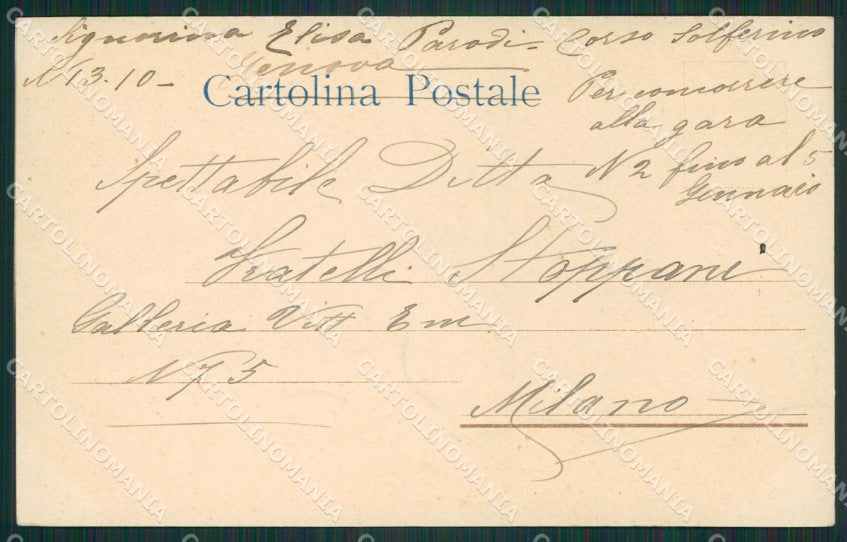 Signorina Elisa Parodi - Corso Solferino
N 13.10 - Genova
Cartolina Postale
Per concorrere
alla gara
N 2 fino al 5
Gennaio
Spettabile Ditta
Fratelli Stoppani
Galleria Vitt Em
N 75
Milano
CARTOLINOMANIA